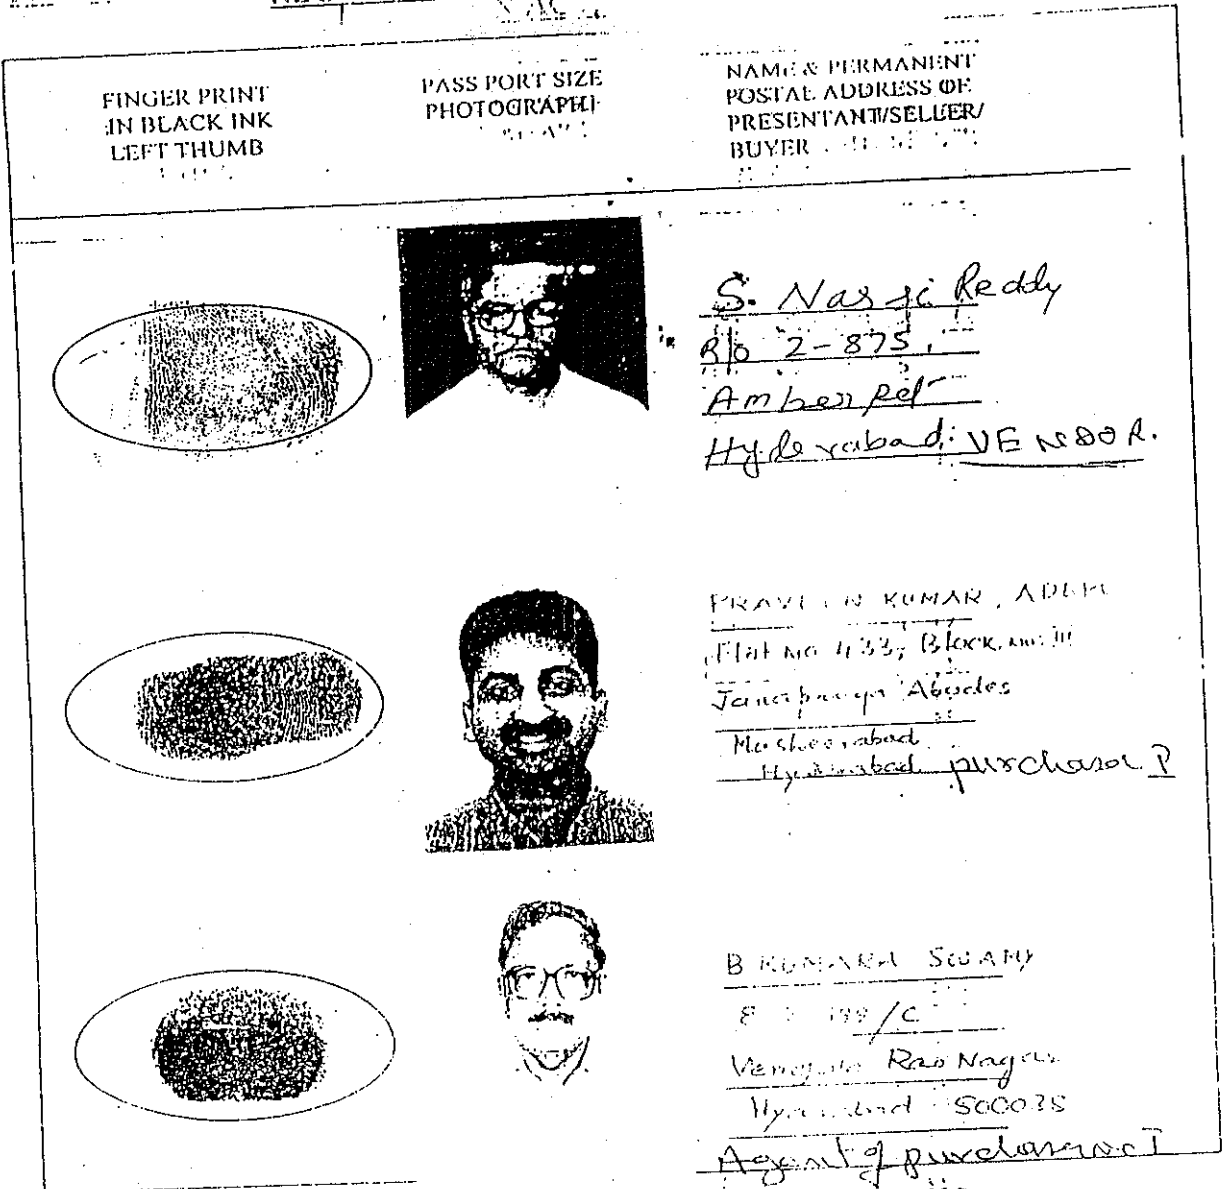 FINGER PRINT
IN BLACK INK
LEFT THUMB
PASS PORT SIZE
PHOTOGRAPH
NAME & PERMANENT
POSTAL ADDRESS OF
PRESENTANT/SELLER/
BUYER
S. Narsi Reddy
R/o 2-875,
Amberpet
Hyderabad. VENDOR.
PRAVEEN KUMAR,
Flat No 433, Block
Abodes
Musheerabad
Hyderabad purchaser I
B KUMARA SWAMY
/C
Rao Nagar
Hyderabad 500038
Agent of purchaser I